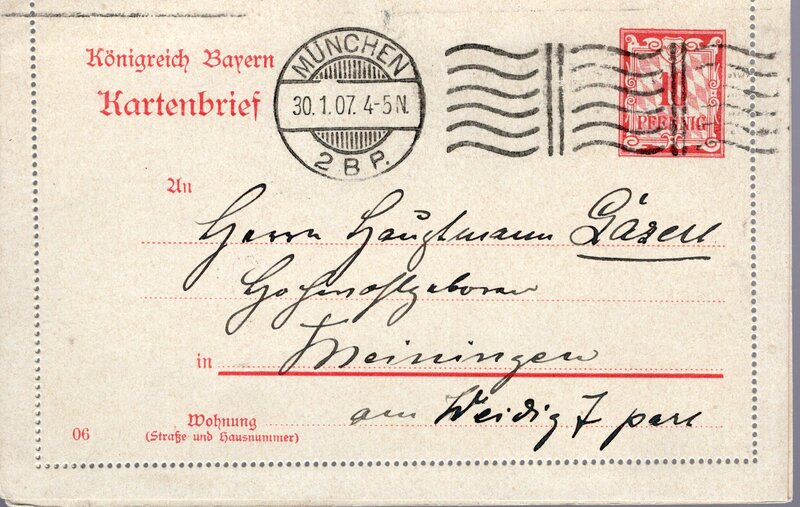 Königreich Bayern
Kartenbrief
MÜNCHEN
30.1.07. 4-5 N.
2 B P.
10
PFENNIG
An
Herrn Hauptmann
Hochwohlgeboren
in Meiningen
am Weidig 7 part
Wohnung
(Straße und Hausnummer)
06